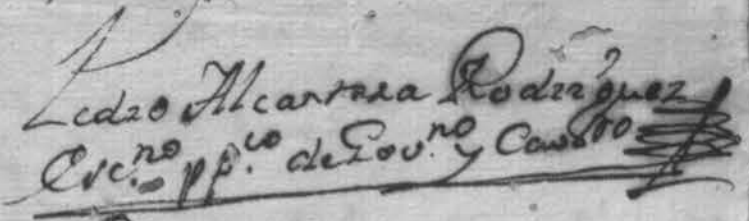 Pedro Alcantara Rodriguez
Esc.no pp.co de Gov.no y Cavdo